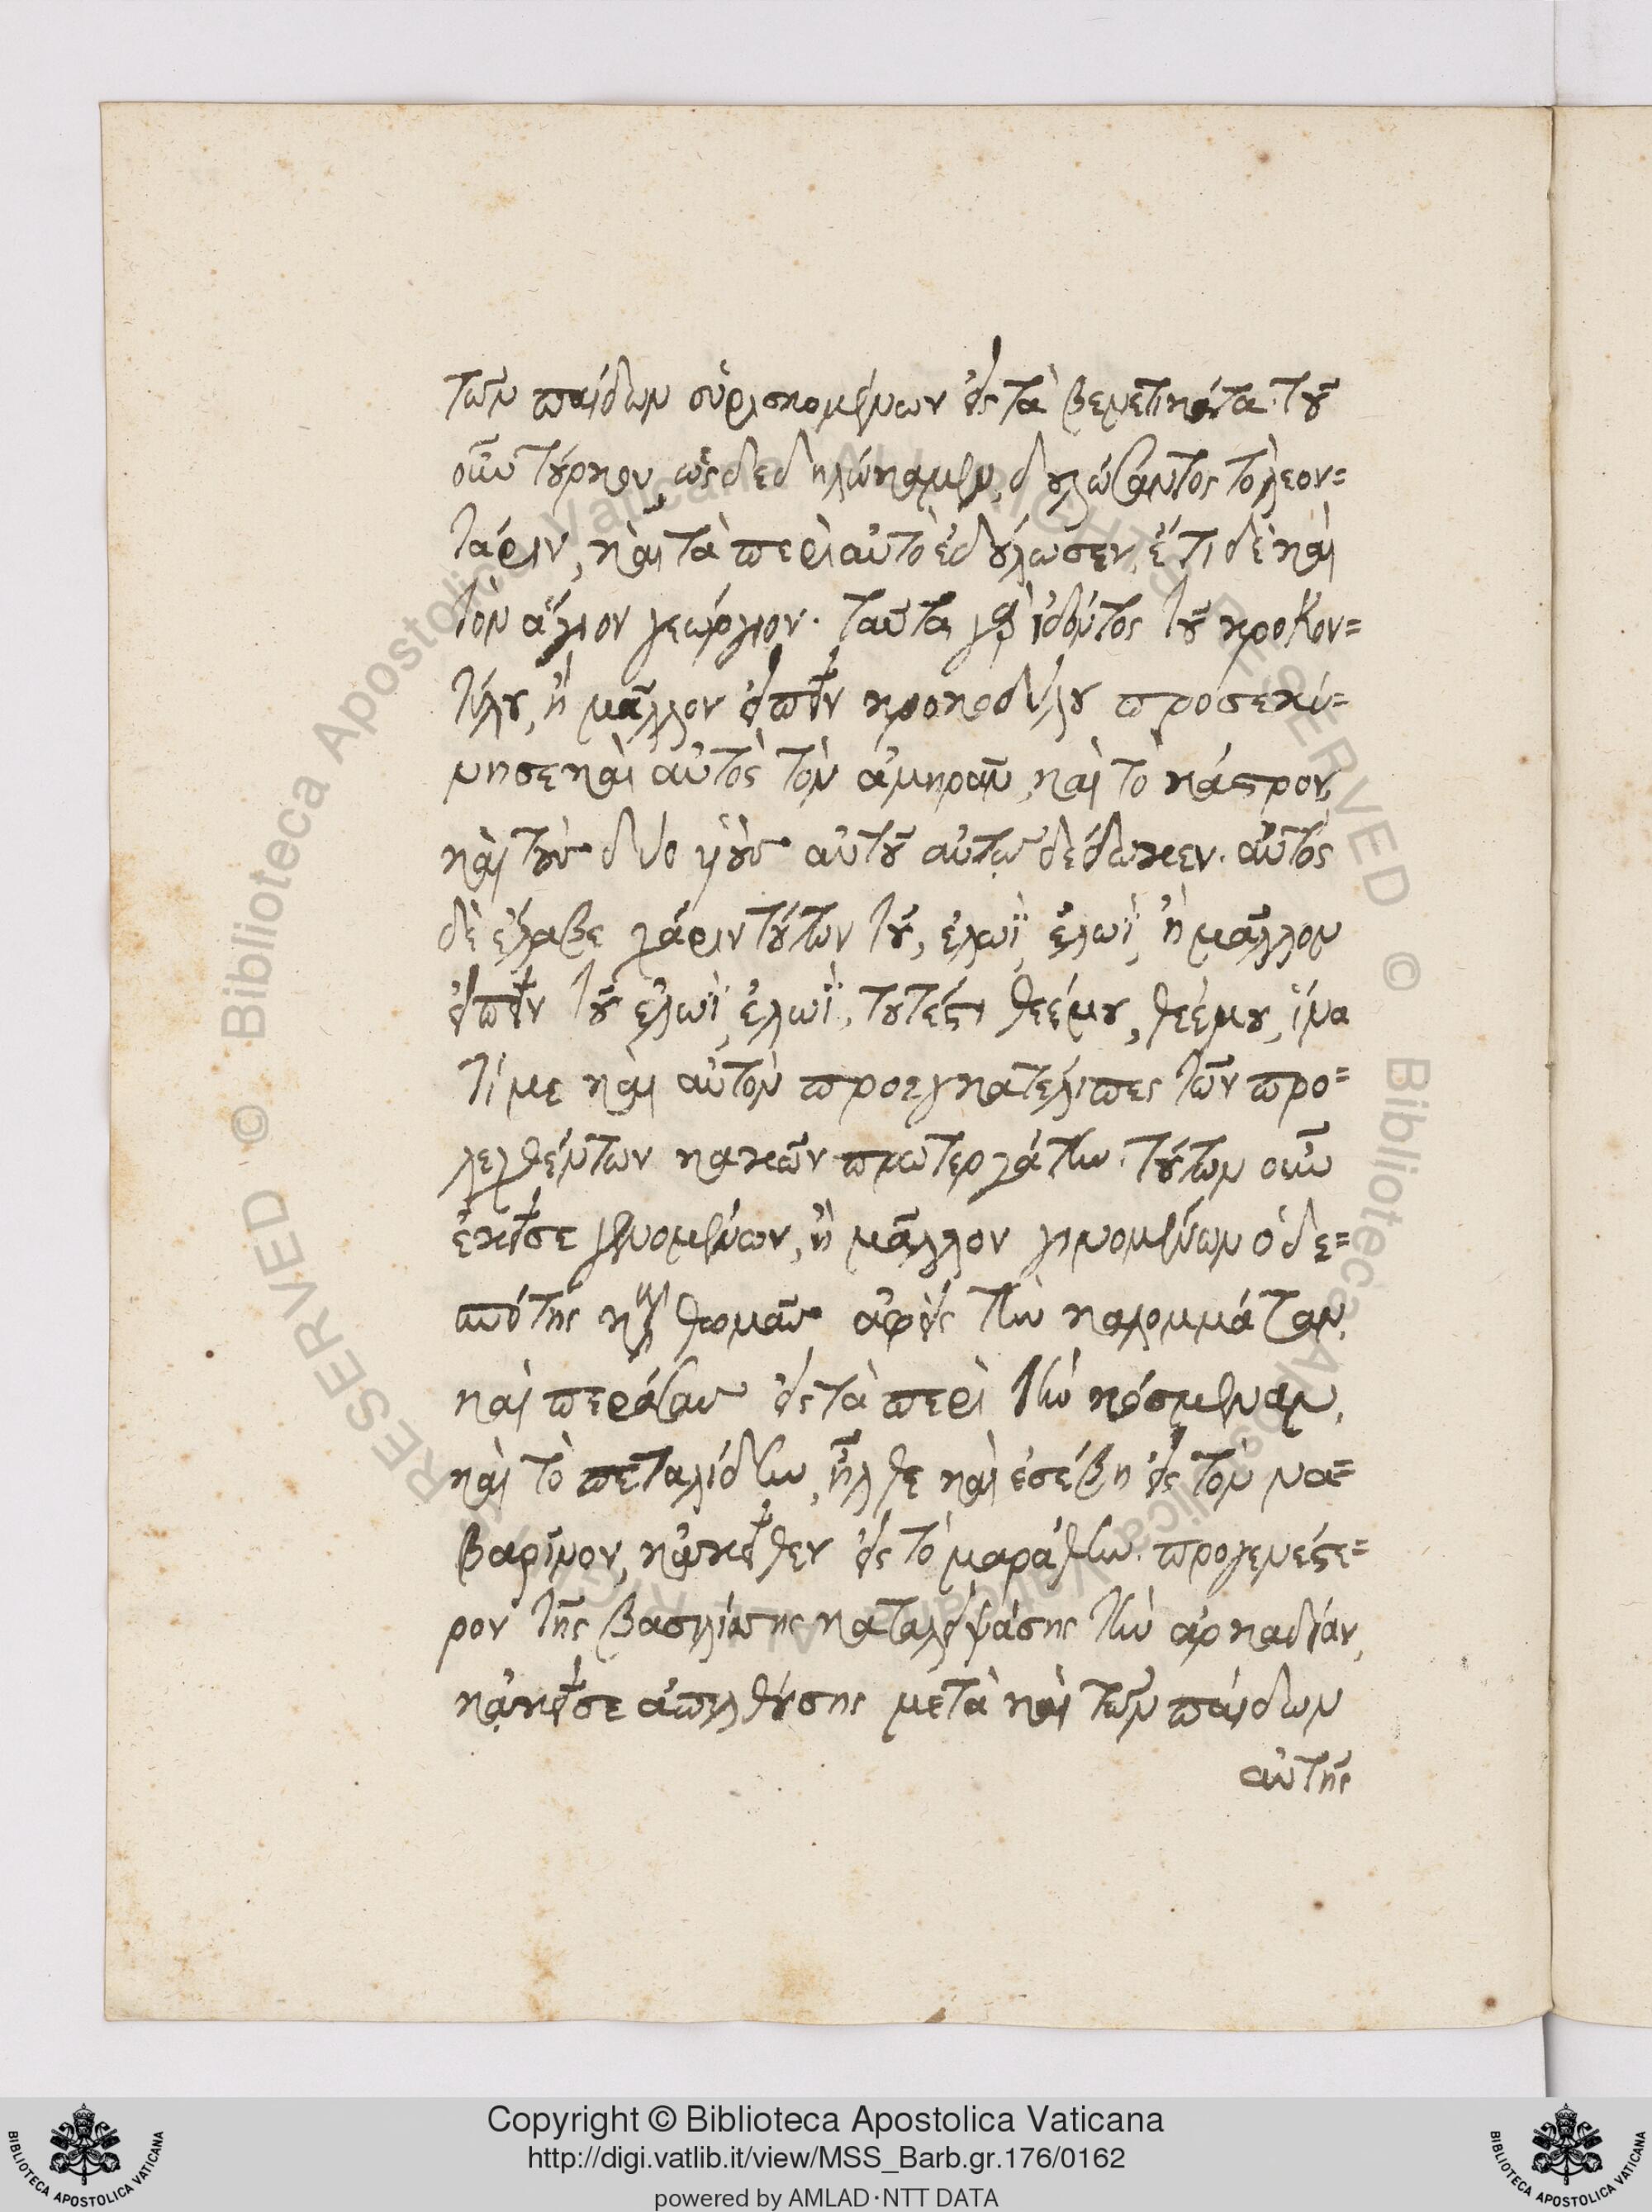 τῶν παίδων εὑρισκομένων εἰς τὰ βενετικάτα· τοῦ
οὖν τούρκου, ὡς δεδηλώκαμεν, δουλώσαντος τὸ λεον=
τάριν, καὶ τὰ περὶ αὐτὸ ἐδούλωσεν, ἔτι δὲ καὶ
τὸν ἅγιον γεώργιον· ταῦτα γὰρ ἰδόντος τοῦ κροκον=
τύλου, ἢ μᾶλλον εἰπεῖν κροκοδείλου προσεκύ=
νησε καὶ αὐτὸς τὸν ἀμηρᾶν, καὶ τὸ κάστρον,
καὶ τοὺς δύο υἱοὺς αὐτοῦ αὐτῷ δέδωκεν· αὐτὸς
δὲ ἔλαβε χάριν τούτων τοῦ, ἐλωῒ ἐλωῒ, ἢ μᾶλλον
εἰπεῖν τοῦ ἐλωῒ, ἐλωῒ, τουτέστι θεέμου, θεέμου, ἵνα
τί με καὶ αὐτὸν προεγκατέλιπες τῶν προ=
λεχθέντων κακῶν πρωτεργάτην· τούτων οὖν
ἐκεῖσε γενομένων, ἢ μᾶλλον γινομένων ὁ δε=
σπότης κὺρ θωμᾶς ἀφεὶς τὴν καλομμάταν,
καὶ περάσας εἰς τὰ περὶ τὴν κόσμεναν,
καὶ τὸ πεταλίδιν, ἦλθε καὶ ἐσέβη εἰς τὸν να=
βαρῖνον, κἀκεῖθεν εἰς τὸ μαράθιν· προγενέστε=
ρον τῆς βασιλίσσης καταλειψάσης τὴν ἀρκαδίαν,
κἀκεῖσε ἀπελθούσης μετὰ καὶ τῶν παίδων
αὐτῆς
Copyright © Biblioteca Apostolica Vaticana
http://digi.vatlib.it/view/MSS_Barb.gr.176/0162
powered by AMLAD·NTT DATA